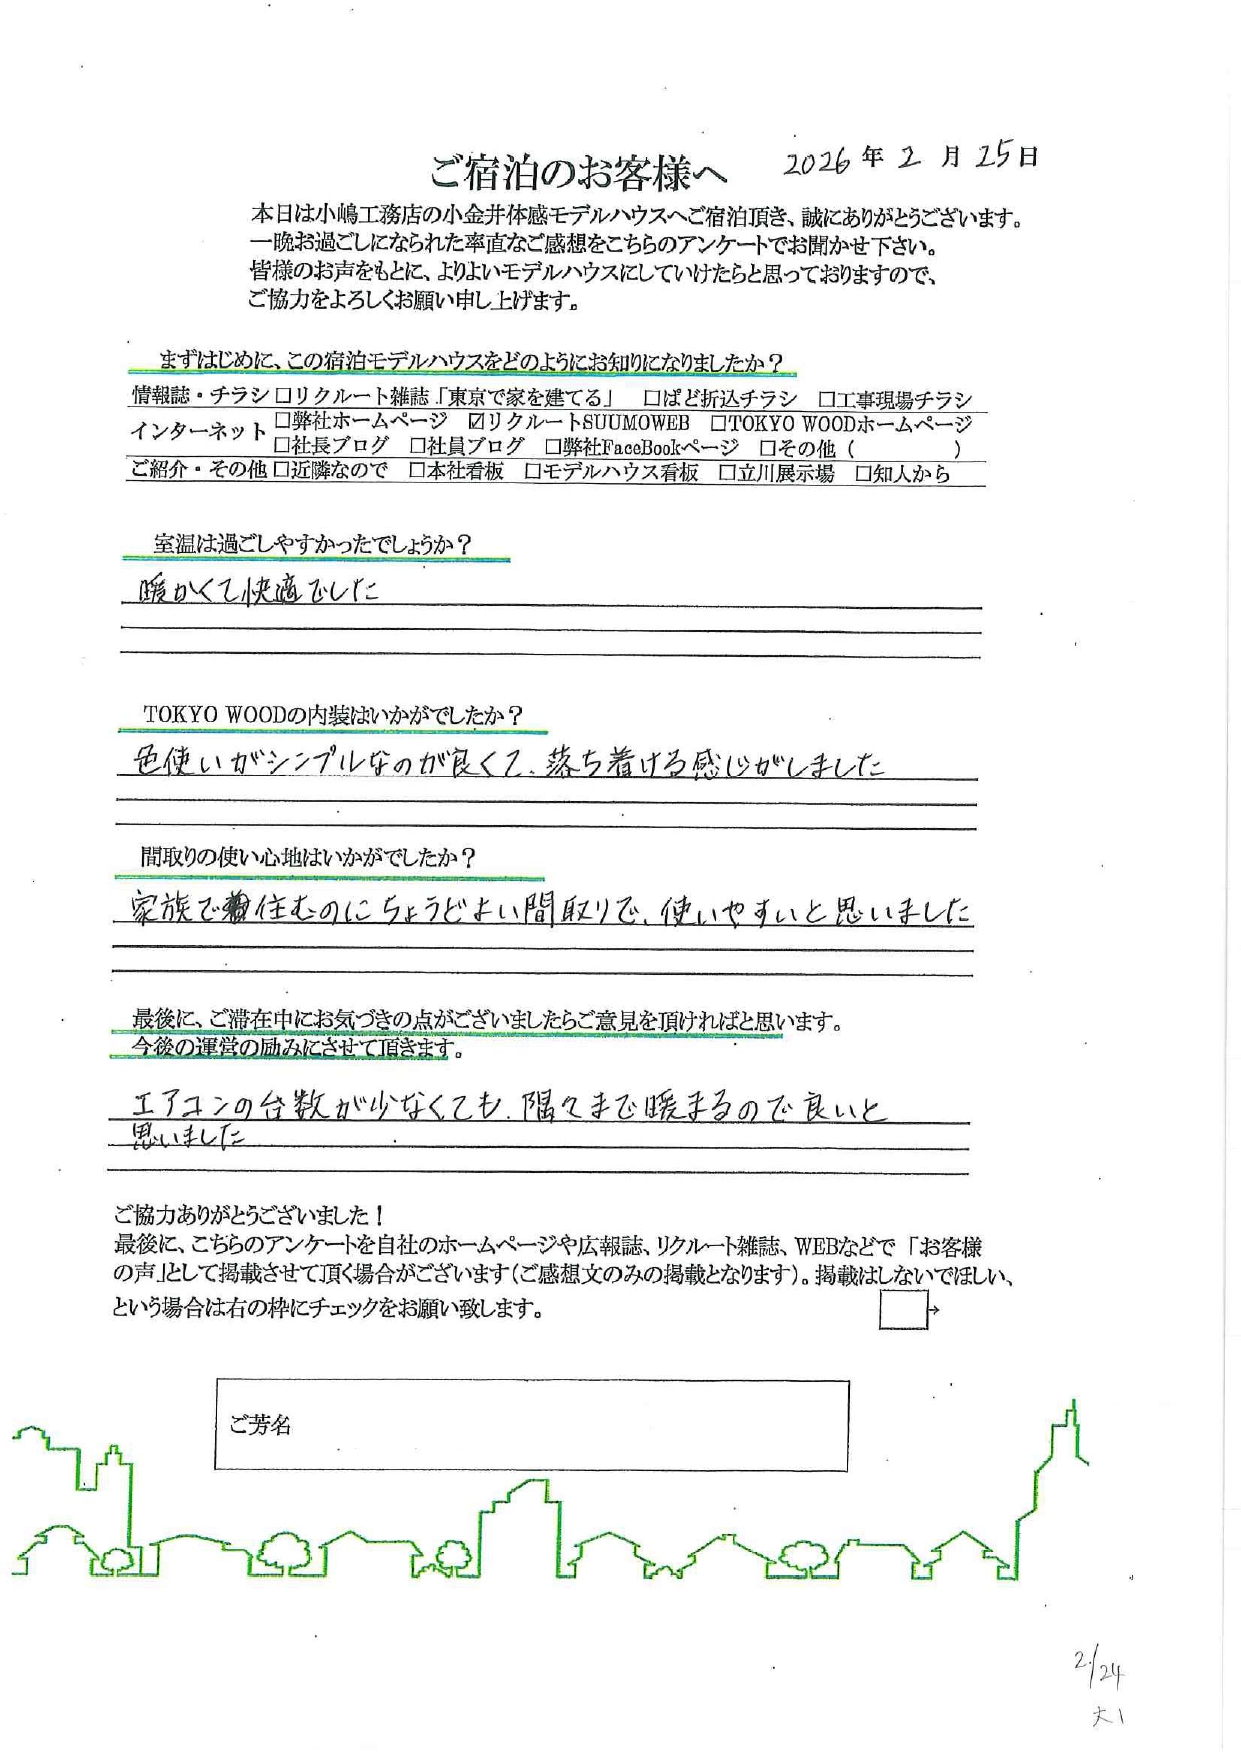 ご宿泊のお客様へ 2026年2月25日
本日は小嶋工務店の小金井体感モデルハウスへご宿泊頂き、誠にありがとうございます。
一晩お過ごしになられた率直なご感想をこちらのアンケートでお聞かせ下さい。
皆様のお声をもとに、よりよいモデルハウスにしていけたらと思っておりますので、
ご協力をよろしくお願い申し上げます。
まずはじめに、この宿泊モデルハウスをどのようにお知りになりましたか？
情報誌・チラシ □リクルート雑誌「東京で家を建てる」 □ぱど折込チラシ □工事現場チラシ
インターネット □弊社ホームページ ☑リクルートSUUMOWEB □TOKYO WOODホームページ
□社長ブログ □社員ブログ □弊社FaceBookページ □その他（ ）
ご紹介・その他 □近隣なので □本社看板 □モデルハウス看板 □立川展示場 □知人から
室温は過ごしやすかったでしょうか？
暖かくて快適でした
TOKYO WOODの内装はいかがでしたか？
色使いがシンプルなのが良くて、落ち着ける感じがしました
間取りの使い心地はいかがでしたか？
家族で住むのにちょうどよい間取りで、使いやすいと思いました
最後に、ご滞在中にお気づきの点がございましたらご意見を頂ければと思います。
今後の運営の励みにさせて頂きます。
エアコンの台数が少なくても、隅々まで暖まるので良いと
思いました
ご協力ありがとうございました！
最後に、こちらのアンケートを自社のホームページや広報誌、リクルート雑誌、WEBなどで「お客様
の声」として掲載させて頂く場合がございます（ご感想文のみの掲載となります）。掲載はしないでほしい、
という場合は右の枠にチェックをお願い致します。 □→
ご芳名
2/24
大1